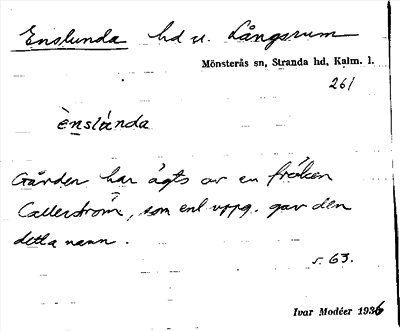 Enslunda hd u. Långsrum
Mönsterås sn, Stranda hd, Kalm. l.
261
ènslánda
Gården har ägts av en fröken
Callerström, som enl. uppg. gav den
detta namn.
s. 63.
Ivar Modéer 1936